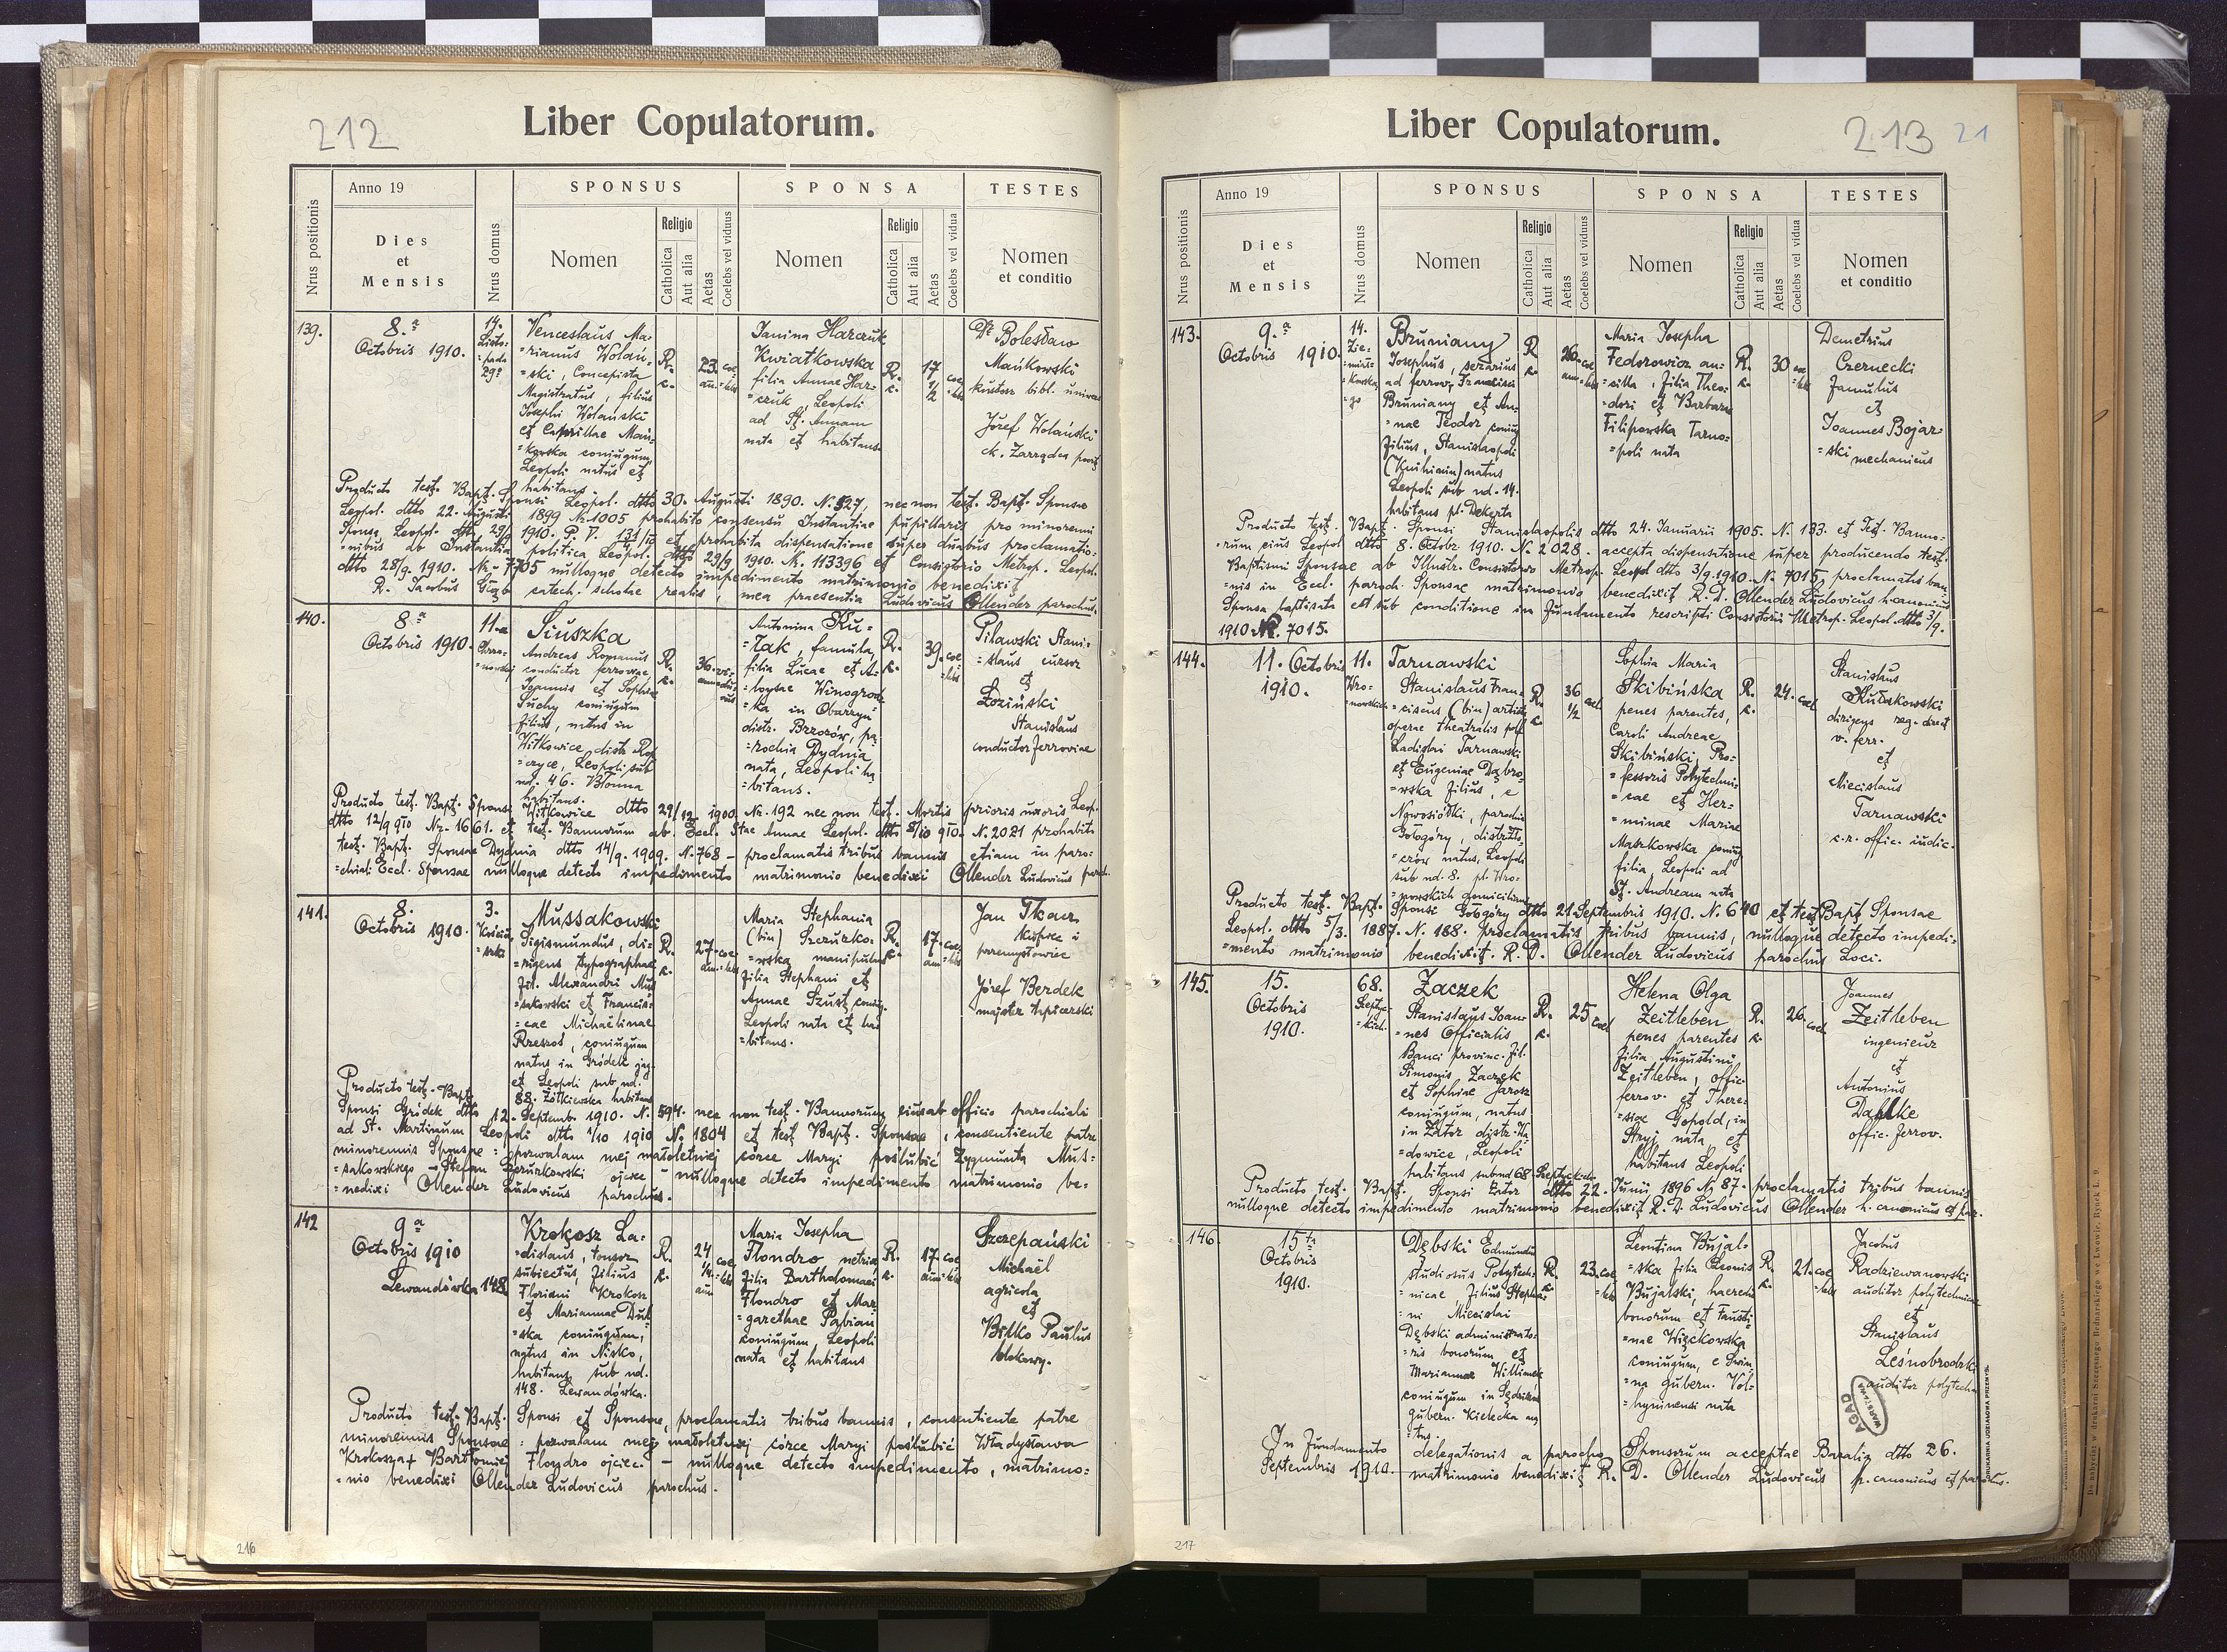 212
Liber Copulatorum.
Nrus positionis
Anno 19
Dies
et
Mensis
Nrus domus
SPONSUS
Nomen
Religio
Catholica
Aut alia
Aetas
Coelebs vel viduus
SPONSA
Nomen
Religio
Catholica
Aut alia
Aetas
Coelebs vel vidua
TESTES
Nomen
et conditio
139.
8.a
Octobris 1910.
14.
Listo-
=pada
29.
Venceslaus Ma-
=rianus Wolań-
=ski, Concepista
Magistratus, filius
Josephi Wolański
et Camillae Mań-
=kowska coniugum,
Leopoli natus et
habitans.
R.
k.
23. coe-
ann. =lebs
Janina Harczuk
Kwiatkowska
filia Annae Har-
=czuk, Leopoli
ad St. Annam
nata et habitans
R.
k.
17
1/2
coe
=lebs
Dr Bolesław
Mańkowski
kustosz bibl. uniwer
Józef Wolański
ck. Zarządca poczt
Producto test. Bapt. Sponsi Leopol. dtto 30. Augusti 1890. N. 527, nec non test. Bapt. Sponsae
Leopol. dtto 22. Augusti 1899 Nr 1005 prohabito consensu Instantiae pupillaris pro minorenni
Sponsa Leopol. dtto 29/9 1910. P. V. 131/10 et prohabita dispensatione super duabus proclamatio-
=nibus ab Instantia politica Leopol. dtto 29/9 1910. N. 113396 et Consistorio Metrop. Leopol.
dtto 28/9. 1910. Nr. 7705 nulloque detecto impedimento matrimonio benedixit
R. Jacobus Głąb catech. scholae realis, mea praesentia Ludovicus Ollender parochus.
140.
8.a
Octobris 1910.
11.a
Siuszka
Andreas Romanus
conductor ferroviae
Joannis et Sophiae
Suchy coniugum
filius, natus in
Witkowice, distr. Rop
=czyce, Leopoli sub
nd. 46. Błonna
habitans.
R.
k.
36. vi-
ann. du-
us
Antonina Ku-
=tak, famula,
filia Lucae et A-
=loysae Winogrod
=ka in Obarzyn
distr. Brzozów, pa-
=rochia Dydnia
nata, Leopoli ha
=bitans.
R.
k.
39. coe
=lebs
Pilawski Stani-
=slaus cursor
et
Łoziński
Stanislaus
conductor ferroviae
Producto test. Bapt. Sponsi Witkowice dtto 29/12 1900. Nr. 192 nec non test. Mortis prioris uxoris Leop.
dtto 12/9 910 Nr. 1661. et test. Bannorum ab Eccl. Stae Annae Leopol. dtto 8/10 910. N. 2021 prohabito
test. Bapt. Sponsae Dydnia dtto 14/9. 1909. N. 768 - proclamatis tribus bannis etiam in paro-
=chiali Eccl. Sponsae nulloque detecto impedimento matrimonio benedixi Ollender Ludovicus paroch.
141.
8.
Octobris 1910.
3.
Mussakowski
Sigismundus, di-
=rigens typographae,
fil. Alexandri Mus
=sakowski et Francis-
=cae Michaëlinae
Rzeszoś, coniugum
natus in Gródek jag.
et Leopoli sub nd.
88. Żółkiewska habitans
R.
k.
27. coe
ann. =lebs
Maria Stephania
(bin) Szczurko-
=wska manipulan
filia Stephani et
Annae Szust, coniug.
Leopoli nata et ha
=bitans.
R.
k.
17. coe
ann =lebs
Jan Tkacz
kupiec i
przemysłowiec
Józef Berdek
majster tapicerski
Producto test. Bapt.
Sponsi Gródek dtto 12. Septemb. 1910. N. 594. nec non test. Bannorum eius ab officio parochiali
ad St. Martinum Leopoli dtto 1/10 1910 N. 1804 et test Bapt. Sponsae, consentiente patre
minorennis Sponsae: pozwalam mej małoletniej córce Maryi poślubić Zygmunta Mus-
=sakowskiego - Stefan Szczurkowski ojciec - nulloque detecto impedimento matrimonio be-
=nedixi Ollender Ludovicus parochus.
142
9a
Octobris 1910
Lewandówka 148
Krokosz La-
=dislaus, tonsor
subiectus, filius
Floriani Krokosz
et Mariannae Dul
=ska coniugum,
natus in Nisko,
habitans sub nd.
148. Lewandówka.
R.
k.
24
1/4.
ann
coe
=lebs
Maria Josepha
Flondro netria,
filia Bartholomaei
Flondro et Mar-
=garethae Pabian
coniugum Leopoli
nata et habitans
R.
k.
17 coe
ann =lebs
Szczepański
Michaël
agricola
et
Bitko Paulus
blokowy.
Producto test. Bapt. Sponsi et Sponsae, proclamatis tribus bannis, consentiente patre
minorennis Sponsae: pozwalam mej małoletniej córce Maryi poślubić Władysława
Krokosza + Bartłomiej Flondro ojciec. - nulloque detecto impedimento, matrimo-
=nio benedixi Ollender Ludovicus parochus.
216
213
21
Liber Copulatorum.
Nrus positionis
Anno 19
Dies
et
Mensis
Nrus domus
SPONSUS
Nomen
Religio
Catholica
Aut alia
Aetas
Coelebs vel viduus
SPONSA
Nomen
Religio
Catholica
Aut alia
Aetas
Coelebs vel vidua
TESTES
Nomen
et conditio
143.
9.a
Octobris 1910.
14.
Zie-
=mia-
=kowskie-
=go
Bruniany
Josephus, serarius
ad ferrov. Francisci
Bruniany et An-
=nae Teodor coniug
filius, Stanislaopoli
(Knihinin) natus
Leopoli sub nd. 14.
habitans pl. Dekerta
R
k.
26. coe
ann. =lebs
Maria Josepha
Fedorowicz an-
=cilla, filia Theo-
=dori et Barbarae
Filipowska Tarno-
=poli nata
R.
k.
30 coe
=lebs
Demetrius
Czernecki
famulus
et
Joannes Bojar-
=ski mechanicus
Producto test. Bapt. Sponsi Stanislaopolis dtto 24. Januarii 1905. N. 133. et Test. Banno-
=rum eius Leopol dtto 8. Octobr. 1910. N. 2028. accepta dispensatione super producendo test.
Baptismi Sponsae ab Illustr. Consistorio Metrop. Leopol dtto 3/9. 1910. N. 7015, proclamatis ban
=nis in Eccl. paroch. Sponsae matrimonio benedixit R. D. Ollender Ludovicus h. canonicus
Sponsa baptisata est sub conditione in fundamento rescripti Consistorii Metrop. Leopol. dtto 3/9.
1910 Nr. 7015.
144.
11. Octobris
1910.
11.
Wro-
=nowskich
Tarnawski
Stanislaus Fran-
=ciscus (bin) artista
operae theatralis pol
Ladislai Tarnawski
et Eugeniae Dąbro-
=wska filius, e
Nowosiółki, parochia
Gołogóry, distr. Zło-
=czów natus, Leopoli
sub nd. 8. pl. Wro-
=nowskich domicilians
R.
k.
36
1/2
coel
Sophia Maria
Skibińska
penes parentes,
Caroli Andreae
Skibiński, Pro-
=fessoris Polytechni-
=cae et Her-
=minae Mariae
Maszkowska coniug
filia, Leopoli ad
St. Andream nata
R.
k.
24. coel
Stanislaus
Kułakowski
dirigens reg. direct
v. ferr.
et
Miecislaus
Tarnawski
c.r. offic. iudic.
Producto test. Bapt. Sponsi Gołogóry dtto 21 Septembris 1910. N. 640 et test Bapt Sponsae
Leopol. dtto 5/3. 1887. N. 188. proclamatis tribus bannis, nulloque detecto impedi-
=mento matrimonio benedixit. R. D. Ollender Ludovicus parochus Loci.
145.
15.
Octobris
1910.
68.
Szepty-
=ckich
Zaczek
Stanislaus Joan-
=nes Officialis
Banci provinc. fil.
Simonis Zaczek
et Sophiae Jarosz
coniugum, natus
in Zator distr. Wa
=dowice, Leopoli
habitans sub nd 68 Szeptyckich
R.
k.
25 coel
Helena Olga
Zeitleben
penes parentes
filia Augustini
Zeitleben, offic.
ferrov. et There-
=siae Gopold, in
Stryj nata, et
habitans Leopoli
R.
k.
26. coel.
Joannes
Zeitleben
ingenieur
et
Antonius
Dahlke
offic. ferrov.
Producto test. Bapt. Sponsi Zator dtto 22. Junii 1896 N. 87. proclamatis tribus bannis
nulloque detecto impedimento matrimonio benedixit R. D. Ludovicus Ollender h. canonicus et par.
146.
15ta
Octobris
1910.
Dębski Edmundus
studiosus Polytech-
=nicae filius Stepha
=ni Miecislai
Dębski administrato-
=ris bonorum et
Mariannae Willimek
coniugum in Sędziszów
gubern. Kielecka na
=tus.
R.
k.
23. coe
=lebs
Leontina Bujal-
=ska filia Leonis
Bujalski, haeredis
bonorum et Fausti-
=nae Więckowska
coniugum, e Swin
=na gubern. Vol-
=hyniensi nata
R.
k.
21. coe
=lebs
Jacobus
Radziewanowski
auditor polytechnicae
et
Stanislaus
Leśnobrodzki
auditor polytechn
In fundamento delegationis a parocho Sponsorum acceptae Baralip dtto 26.
Septembris 1910. matrimonio benedixit R. D. Ollender Ludovicus h. canonicus et parochus.
AGAD
WARSZAWA
DRUKARNIA UDZIAŁOWA PRZEMYŚL
217